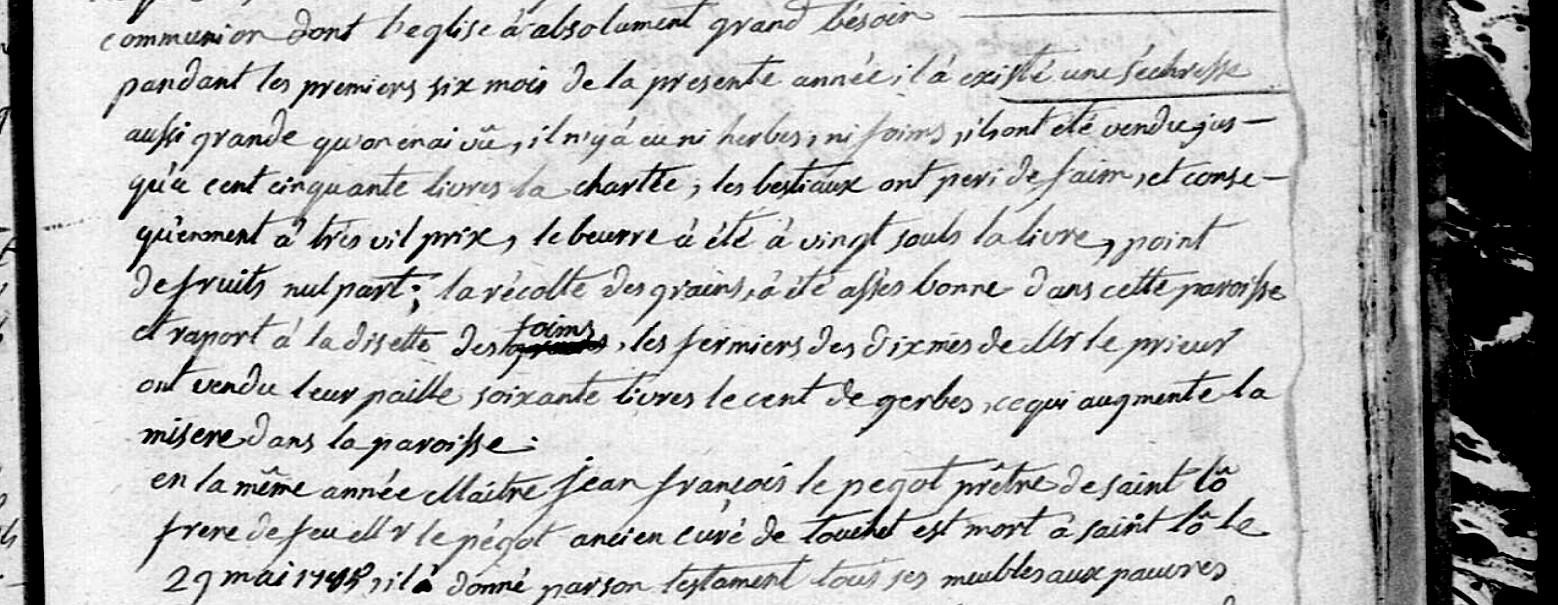 communion dont l'eglise à absolument grand bésoin
pandant les premiers six mois de la presente année, il à existé une séchresse
aussi grande qu'on en ai vû, il n'y à eu ni herbes, ni foins, ils ont été vendu jus-
qu'a cent cinquante livres la chartée; les bestiaux ont peri de faim, et conse-
quenment à très vil prix, le beurre à été à vingt souls la livre, point
de fruits nul part; la récolte des grains, à été assés bonne dans cette paroisse
et raport à la disette des foins, les fermiers des dixmes de Mr le prieur
ont vendu leur paille soixante livres le cent de gerbes, ce qui augmente la
misere dans la paroisse.
en la même année Maitre jean françois le pegot prêtre de saint lô
frere de feu Mr le pégot ancien curé de touchet est mort à saint lô le
29 mai 1785, il à donné par son testament tous ses meubles aux pauvres